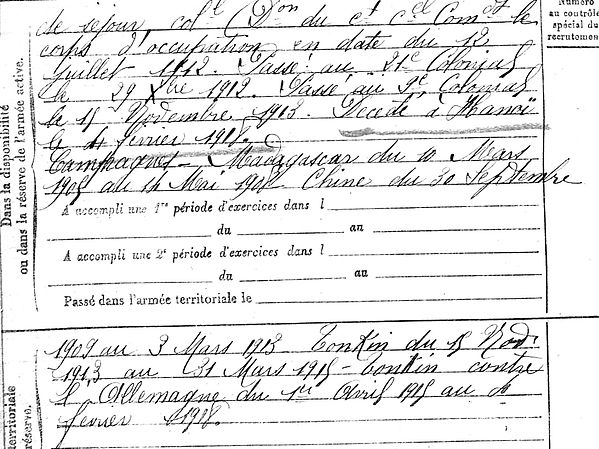 de sejour, col^le (D^on du c^t c^el Com^dt le
corps d'occupation en date du 12
juillet 1912. Passé au 21^e Colonial
le 29 Xbre 1912. Passé au 9^e Colonial
le 15 Novembre 1913. Décédé à Hanoï
le 4 février 1918.
Campagnes - Madagascar du 10 Mars
1905 au 14 Mai 1908 Chine du 30 Septembre
A accompli une 1^re période d'exercices dans l
du au
A accompli une 2^e période d'exercices dans l
du au
Passé dans l'armée territoriale le
1909 au 3 Mars 1913 Tonkin du 15 Nov.
1913 au 31 Mars 1915 - Tonkin contre
l'Allemagne du 1^er Avril 1915 au 4
février 1918.
Dans la disponibilité
ou dans la réserve de l'armée active.
territoriale
réserve.
Numéro
au contrôle
spécial du
recrutement